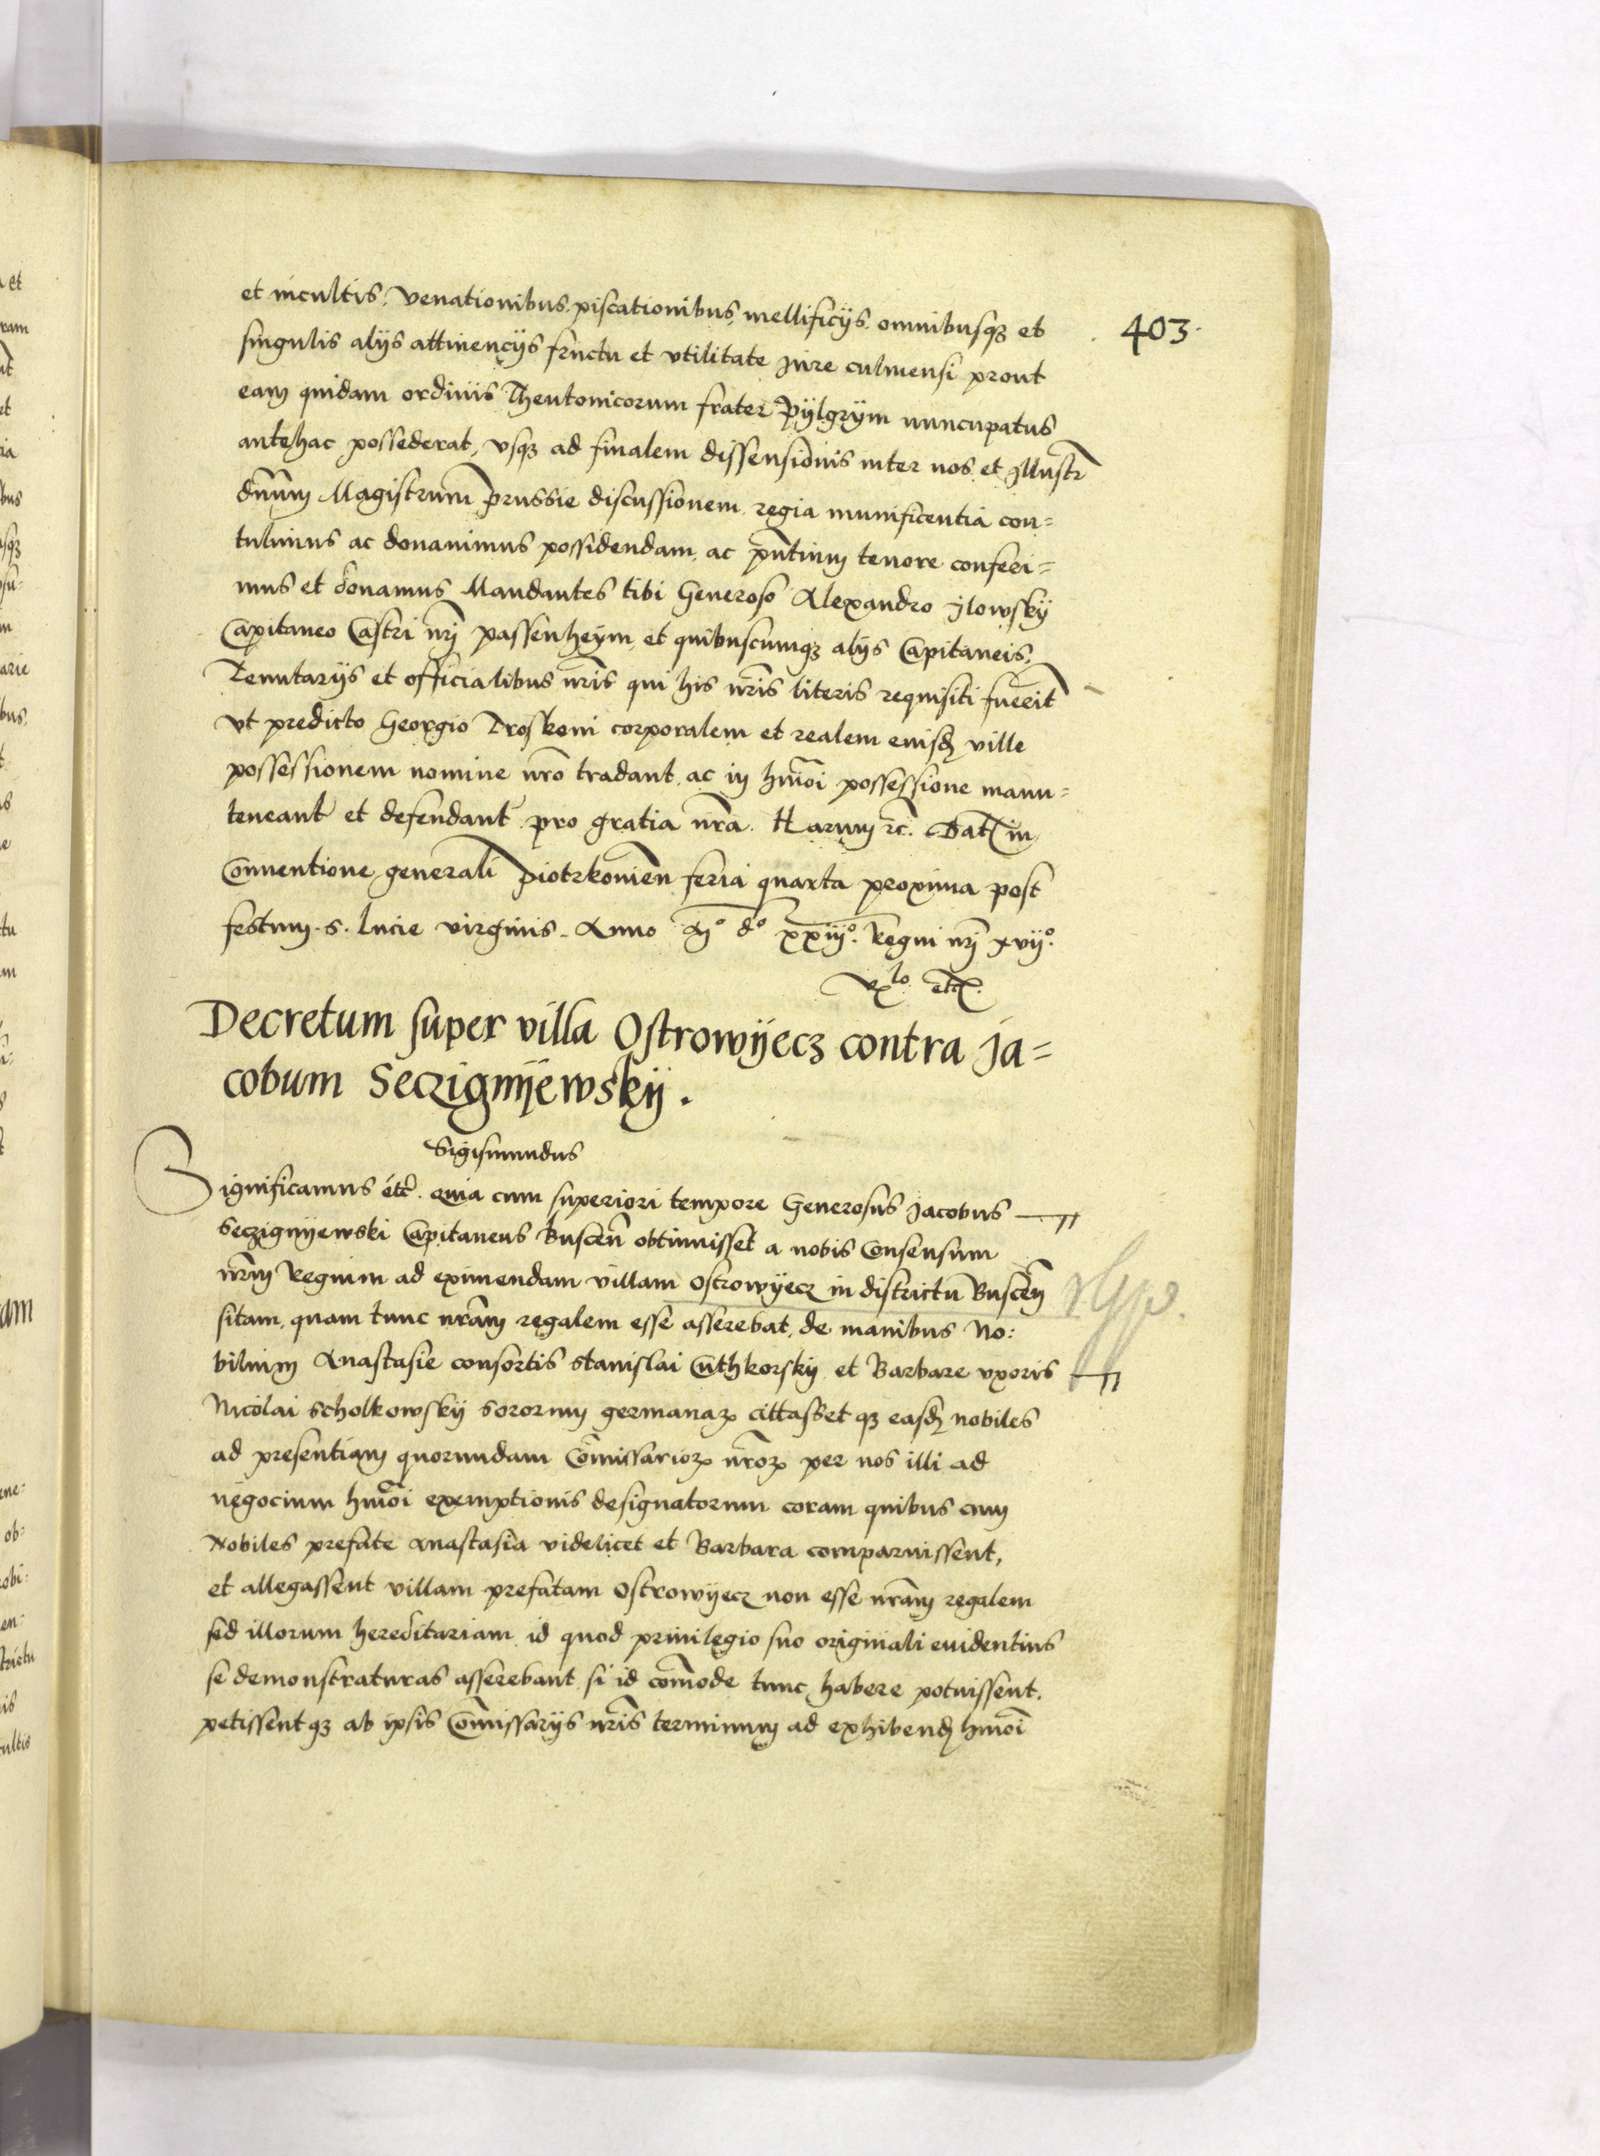 403.
et incultis, venationibus, piscationibus, mellificijs, omnibusqȝ et
singulis alijs attinencijs fructu et vtilitate jure culmensi prout
eam quidam ordinis Theutonicorum frater Pÿlgrÿm nuncupatus
antehac possederat, vsqȝ ad finalem dissensionis inter nos et Jllustr̄
dn̄um Magistrum prussie discussionem, regia munificentia con=
tulimus ac donauimus possidendam, ac pn̄tium tenore conferi=
mus et donamus Mandantes tibi Generoso Alexandro jlowskÿ
Capitaneo Castri nr̄j passenheÿm, et quibuscumqȝ alijs Capitaneis,
Tenutarijs et officialibus nr̄is qui his nr̄is literis requisiti fuerīt
vt predicto Georgio Troskoni corporalem et realem euisd ville
possessionem nomine nr̄o tradant, ac in hmōi possessione manu=
teneant et defendant pro gratia nr̄a. Harum rc̄. Dat in
Conuentione generali Piotrkouien̄ feria quarta proxima post
festum s. lucie virginis. Anno M° d° xxiij°. Regni nr̄j xvij°.
Decretum super villa Ostrowÿecz contra ja=
cobum Seczignÿewskÿ.
Sigismundus
Significamus etc̄. quia cum superiori tempore Generosus jacobus
Seczignÿewski Capitaneus Buscen̄ obtinuisset a nobis Consensum
nr̄m Regium ad eximendam villam Ostrowÿecz in districtu Buscen̄
sitam, quam tunc nr̄am regalem esse asserebat, de manibus No:
bilium Anastasie consortis stanislai Cuthkorskÿ et Barbare vxoris
Nicolai Scholkowskÿ sororum germanaꝝ cittasset qȝ easd nobiles
ad presentiam quorundam Com̄issarioꝝ nr̄oꝝ per nos illi ad
negocium hmōi exemptionis designatorum coram quibus cum
Nobiles prefate Anastasia videlicet et Barbara comparuissent,
et allegassent villam prefatam Ostrowÿecz non esse nr̄am regalem
sed illorum hereditariam, id quod priuilegio suo originali euidentius
se demonstraturas asserebant, si id com̄ode tunc habere potuissent,
petissent qȝ ab ipsis Com̄issarijs nr̄is terminum ad exhibend hmōi